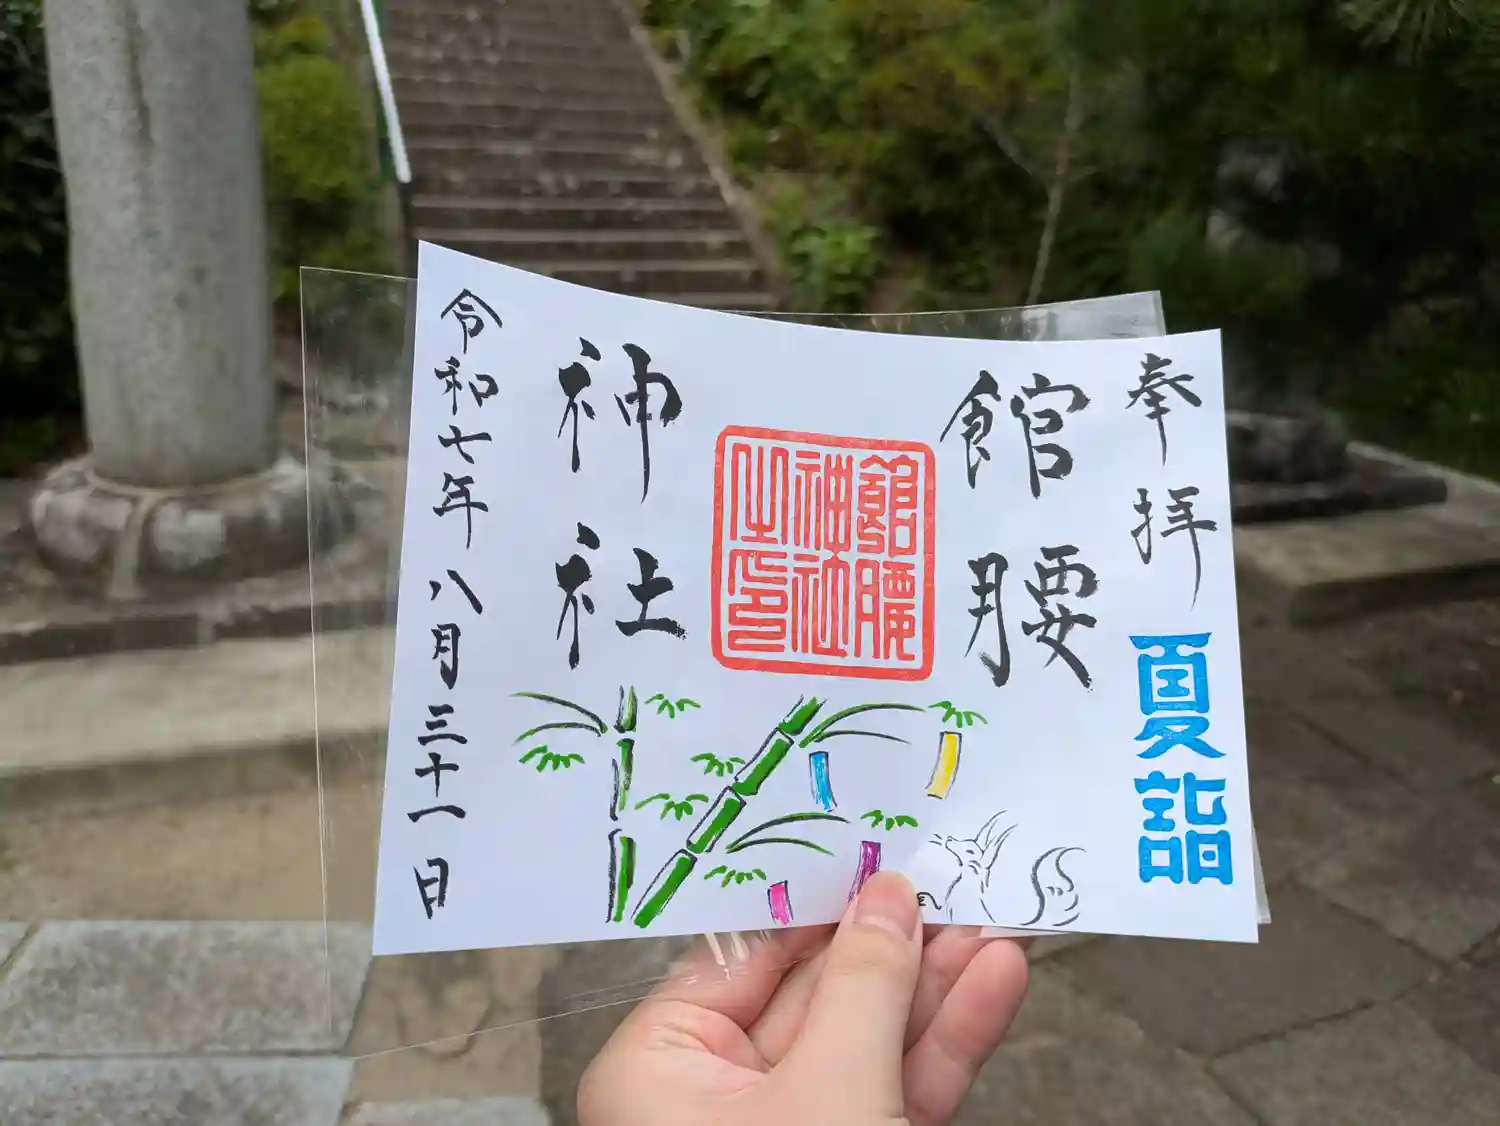 奉拝
夏詣
館腰
神社
館腰
神社
之印
令和七年 八月三十一日